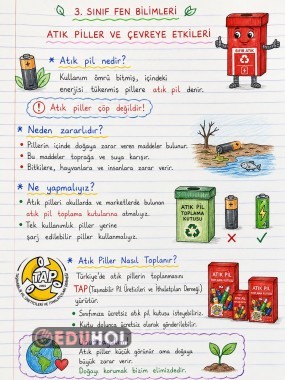 3. SINIF FEN BİLİMLERİ
ATIK PİLLER VE ÇEVREYE ETKİLERİ
* Atık pil nedir?
Kullanım ömrü bitmiş, içindeki
enerjisi tükenmiş pillere atık pil denir.
! Atık piller çöp değildir!
* Neden zararlıdır?
• Pillerin içinde doğaya zarar veren maddeler bulunur.
• Bu maddeler toprağa ve suya karışır.
• Bitkilere, hayvanlara ve insanlara zarar verir.
* Ne yapmalıyız?
• Atık pilleri okullarda ve marketlerde bulunan
atık pil toplama kutularına atmalıyız.
• Tek kullanımlık piller yerine
şarj edilebilir piller kullanmalıyız.
ATIK PİL
TOPLAMA
KUTUSU
* Atık Piller Nasıl Toplanır?
Türkiye'de atık pillerin toplanmasını
TAP (Taşınabilir Pil Üreticileri ve İthalatçıları Derneği)
yürütür.
• Sınıfımıza ücretsiz atık pil kutusu isteyebiliriz.
• Kutu dolunca ücretsiz olarak gönderilebilir.
TAP
ATIK PİL
ATIK PİL
ATIK PİL
EDUHOL
Atık piller küçük görünür ama doğaya
büyük zarar verir.
Doğayı korumak bizim elimizdedir.